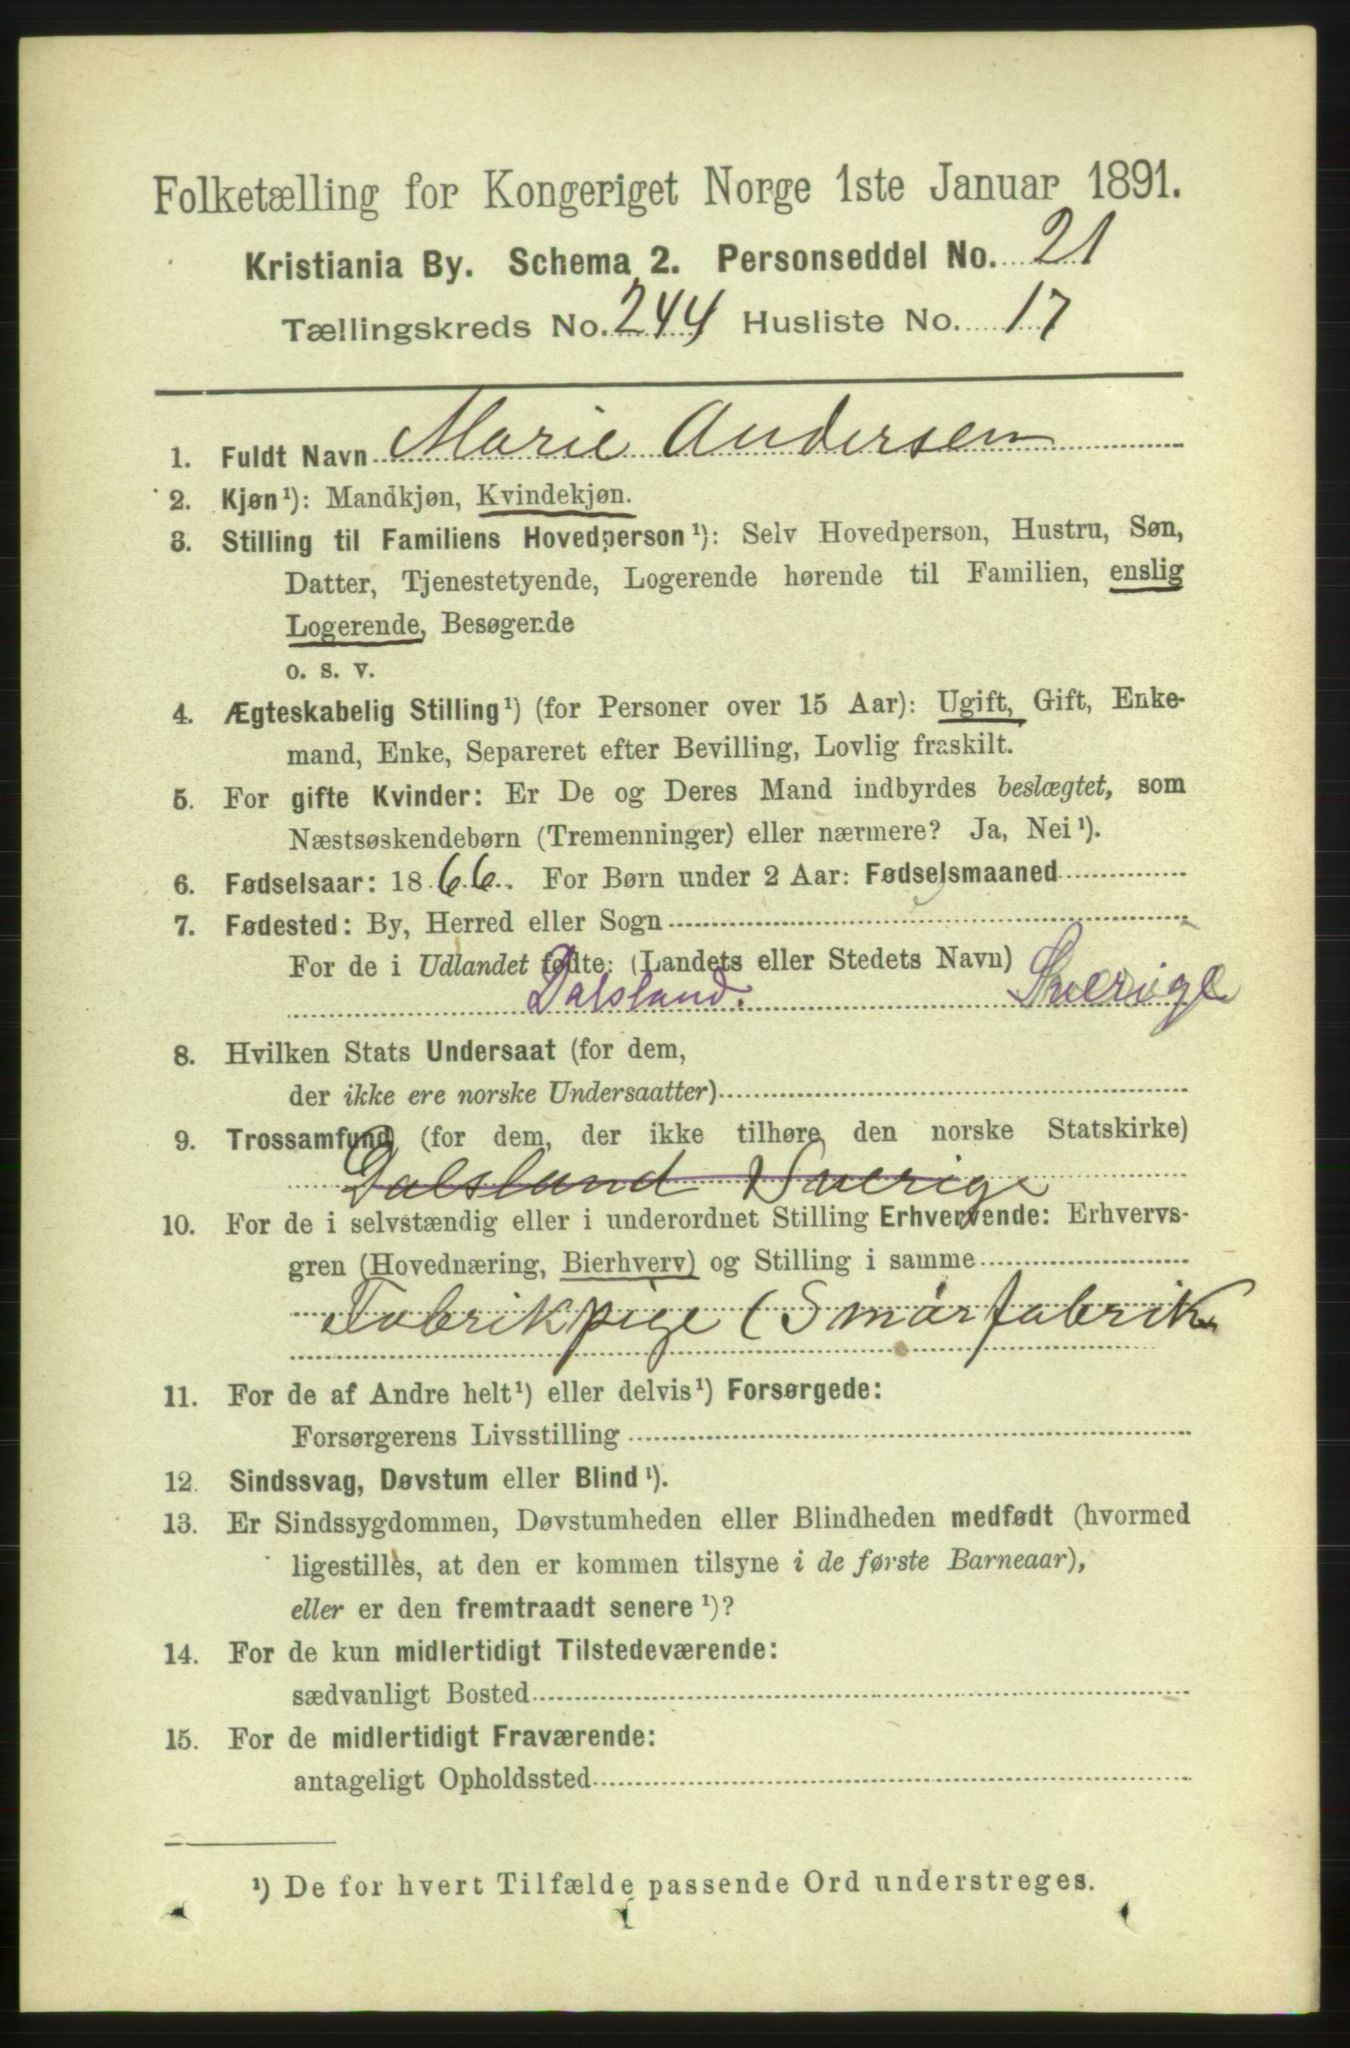 Folketælling for Kongeriget Norge 1ste Januar 1891.
Kristiania By. Schema 2. Personseddel No. 21
Tællingskreds No. 244 Husliste No. 17
1. Fuldt Navn Marie Andersen
2. Kjøn¹): Mandkjøn, Kvindekjøn.
3. Stilling til Familiens Hovedperson¹): Selv Hovedperson, Hustru, Søn,
Datter, Tjenestetyende, Logerende hørende til Familien, enslig
Logerende, Besøgende
o. s. v.
4. Ægteskabelig Stilling¹) (for Personer over 15 Aar): Ugift, Gift, Enke-
mand, Enke, Separeret efter Bevilling, Lovlig fraskilt.
5. For gifte Kvinder: Er De og Deres Mand indbyrdes beslægtet, som
Næstsøskendebørn (Tremenninger) eller nærmere? Ja, Nei¹).
6. Fødselsaar: 1866. For Børn under 2 Aar: Fødselsmaaned
7. Fødested: By, Herred eller Sogn
For de i Udlandet fødte: (Landets eller Stedets Navn)
Dalsland. Sverige
8. Hvilken Stats Undersaat (for dem,
der ikke ere norske Undersaatter)
9. Trossamfund (for dem, der ikke tilhøre den norske Statskirke)
Dalsland Sverige
10. For de i selvstændig eller i underordnet Stilling Erhvervende: Erhvervs-
gren (Hovednæring, Bierhverv) og Stilling i samme
Fabrikpige (Smørfabrik
11. For de af Andre helt¹) eller delvis¹) Forsørgede:
Forsørgerens Livsstilling
12. Sindssvag, Døvstum eller Blind¹).
13. Er Sindssygdommen, Døvstumheden eller Blindheden medfødt (hvormed
ligestilles, at den er kommen tilsyne i de første Barneaar),
eller er den fremtraadt senere¹)?
14. For de kun midlertidigt Tilstedeværende:
sædvanligt Bosted
15. For de midlertidigt Fraværende:
antageligt Opholdssted
¹) De for hvert Tilfælde passende Ord understreges.